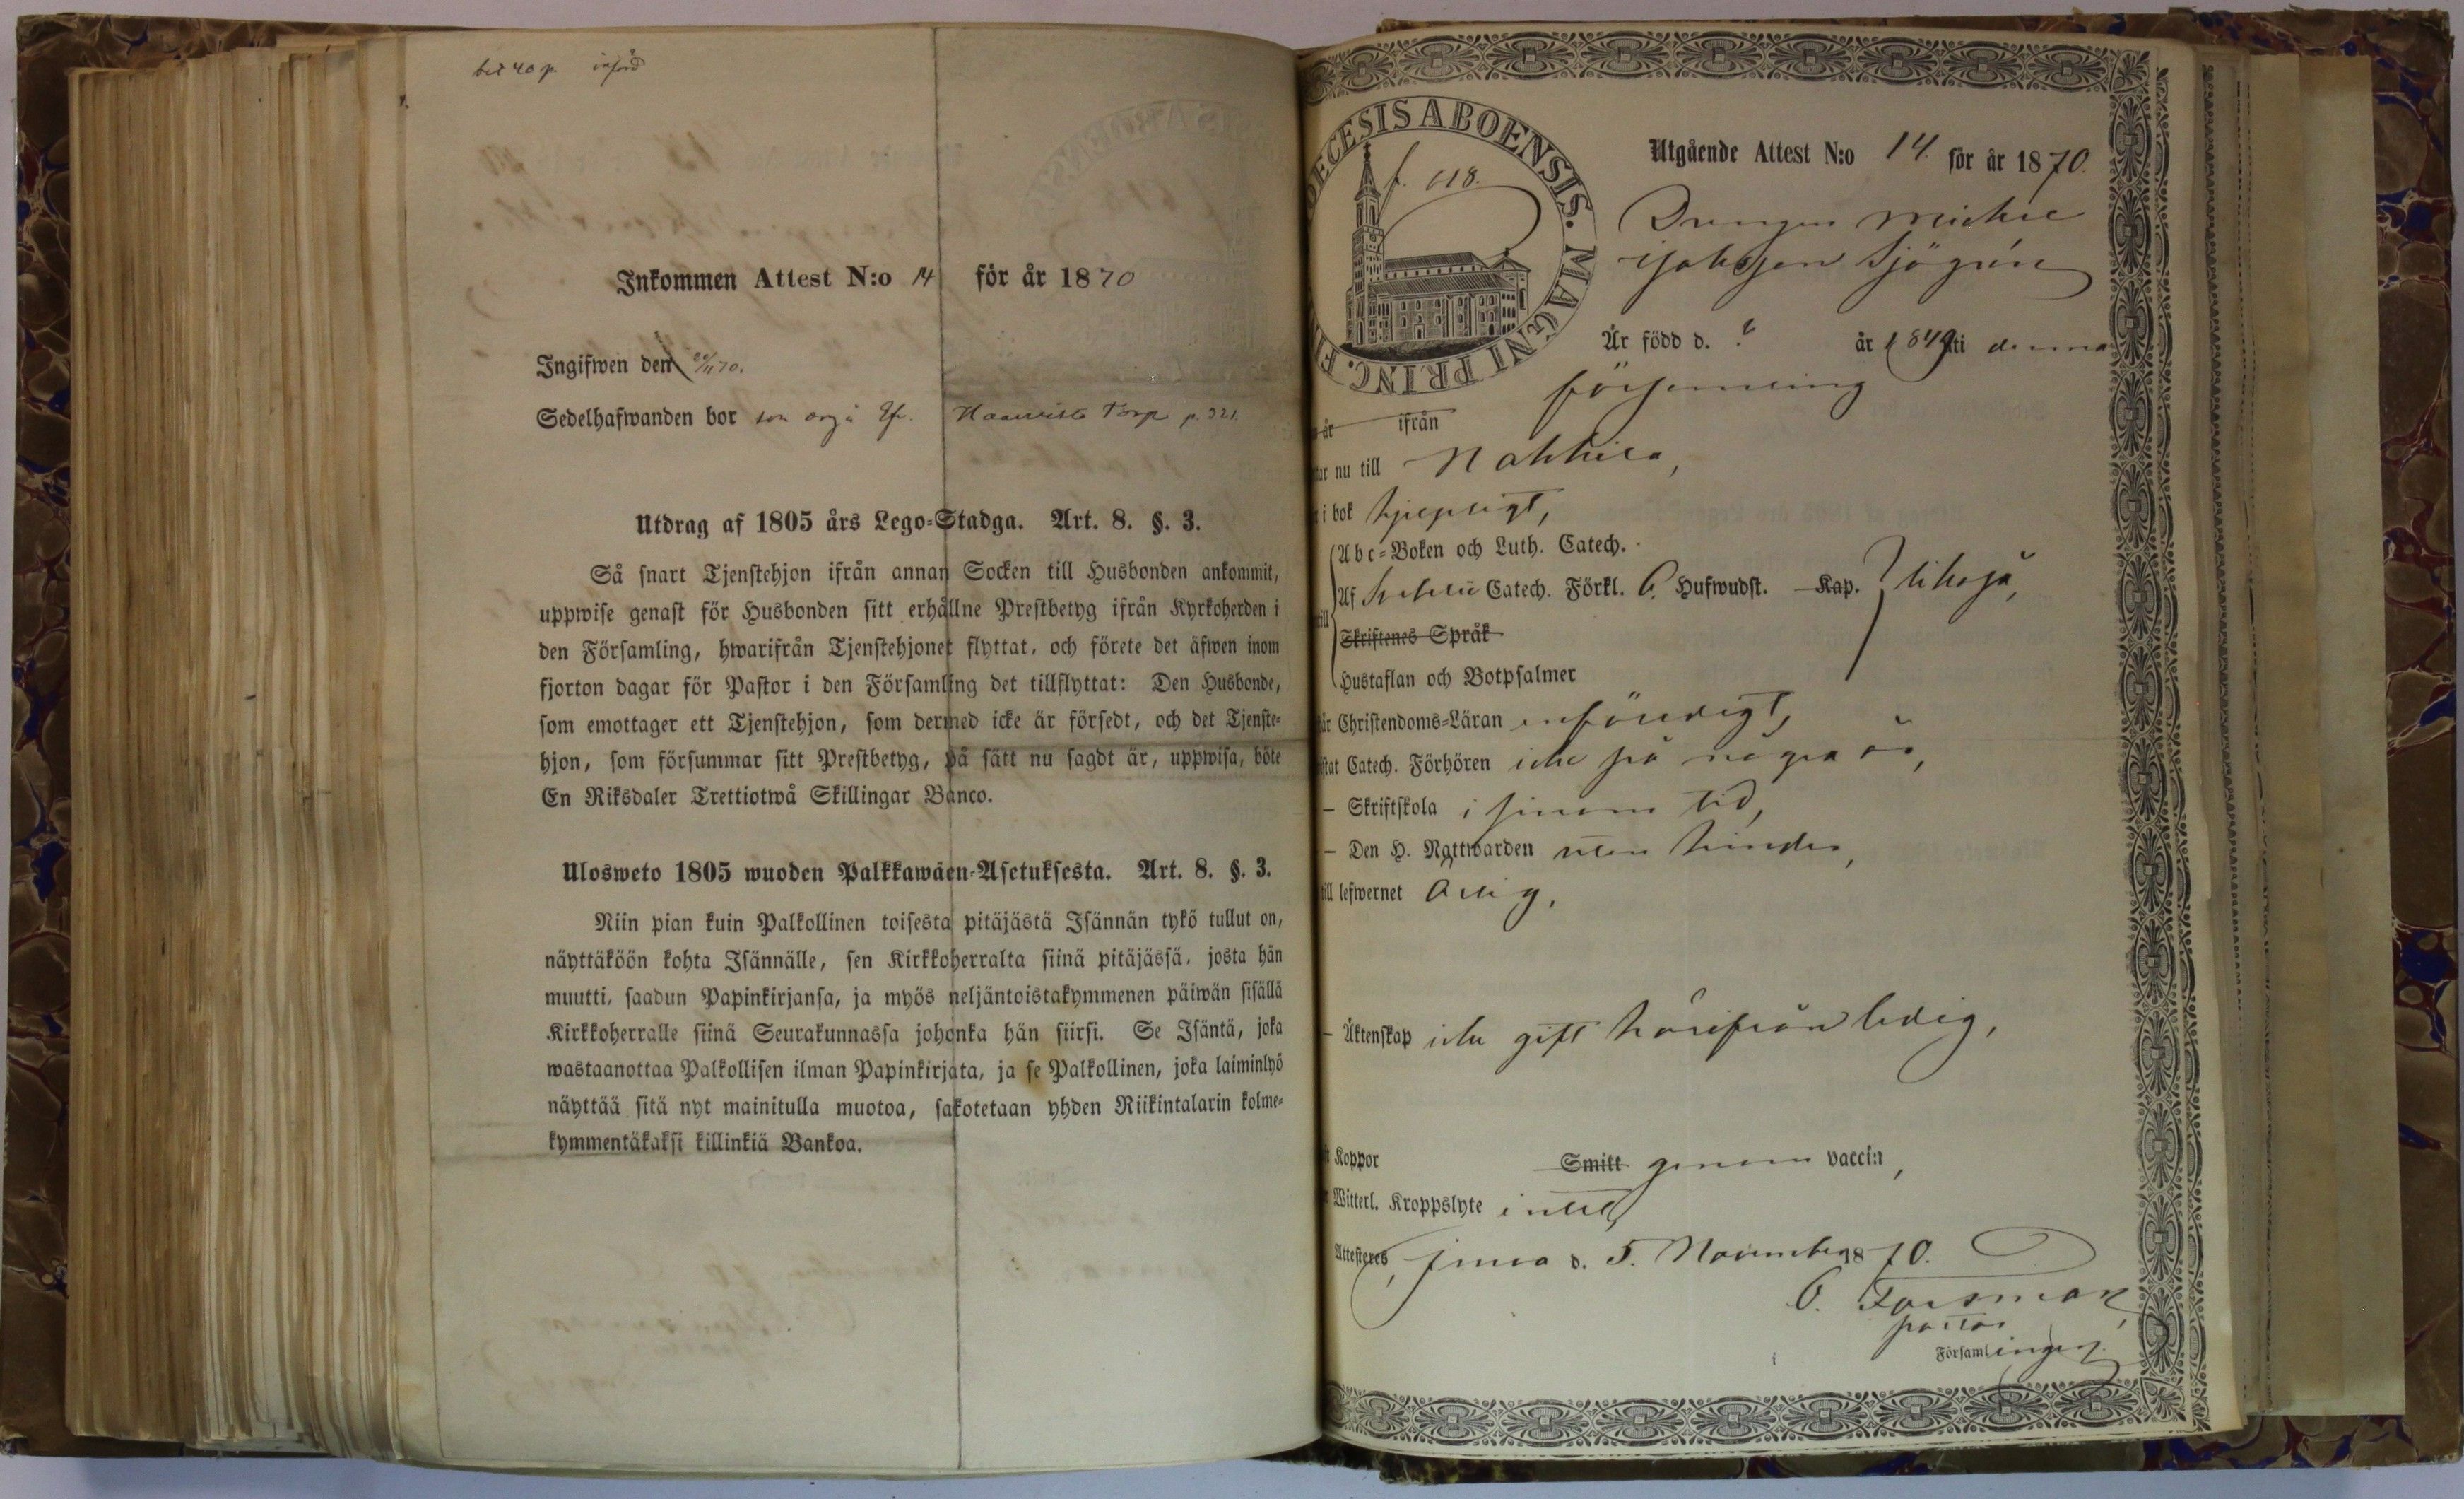 bet 40 p. införd
Inkommen Attest N:o 14 för år 1870
Ingifwen den 20/11 70.
Sedelhafwanden bor som Torp p. 321.
Utdrag af 1805 års Lego-Stadga. Art. 8. §. 3.
Så snart Tjenstehjon ifrån annan Socken till Husbonden ankommit,
uppwise genast för Husbonden sitt erhållne Prestbetyg ifrån Kyrkoherden i
den Församling, hwarifrån Tjenstehjonet flyttat, och förete det äfwen inom
fjorton dagar för Pastor i den Församling det tillflyttat: Den Husbonde,
som emottager ett Tjenstehjon, som dermed icke är försedt, och det Tjenste-
hjon, som försummar sitt Prestbetyg, på sätt nu sagdt är, uppwisa, böte
En Riksdaler Trettiotwå Skillingar Banco.
Ulosweto 1805 wuoden Palkkawäen-Asetuksesta. Art. 8. §. 3.
Niin pian kuin Palkollinen toisesta pitäjästä Isännän tykö tullut on,
näyttäköön kohta Isännälle, sen Kirkkoherralta siinä pitäjässä, josta hän
muutti, saadun Papinkirjansa, ja myös neljäntoistakymmenen päiwän sisällä
Kirkkoherralle siinä Seurakunnassa johonka hän siirsi. Se Isäntä, joka
wastaanottaa Palkollisen ilman Papinkirjata, ja se Palkollinen, joka laiminlyö
näyttää sitä nyt mainitulla muotoa, sakotetaan yhden Riikintalarin kolme-
kymmentäkaksi killinkiä Bankoa.
OECESIS ABOENSIS. MAGNI PRINC. FI
f. 118.
Utgående Attest N:o 14. för år 1870.
Drengen Michel
Jakobson Sjögrén
Är född d. ? år 1849 i denna
församling
år ifrån
nu till Nakkila,
i bok hjelpligt,
Abc-Boken och Luth. Catech.
Af Catech. Förkl. 6. Hufwudst. Kap. likaså,
Skriftenes Språk
Hustaflan och Botpsalmer
Christendoms-Läran enfäldigt,
Catech. Förhören icke på några år,
— Skriftskola i sinom tid,
— Den H. Nattwarden utan hinder,
till lefwernet ärlig,
— Äktenskap icke gift härifrån ledig,
Koppor Smitt genom vaccin,
Witterl. Kroppslyte intet,
Attesteres, d. 5. November 1870.
O. Forsman
pastor
i Församlingen.